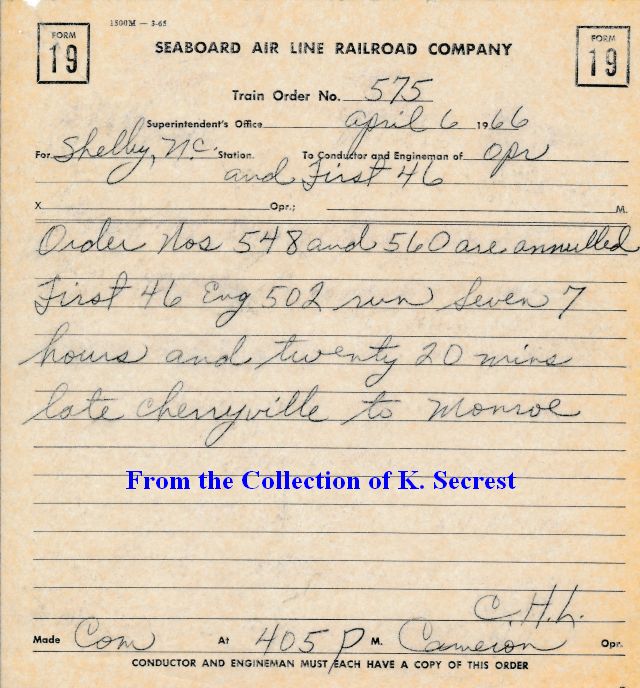 1500M — 3-65
FORM
19
SEABOARD AIR LINE RAILROAD COMPANY
FORM
19
Train Order No. 575
Superintendent's Office April 6 1966
For Shelby, N.C. Station. To Conductor and Engineman of Opr
and First 46
X Opr.; M.
Order Nos 548 and 560 are annulled
First 46 Eng 502 run Seven 7
hours and twenty 20 mins
late Cherryville to Monroe
From the Collection of K. Secrest
C.H.L.
Made Com At 405 P M. Cameron Opr.
CONDUCTOR AND ENGINEMAN MUST EACH HAVE A COPY OF THIS ORDER